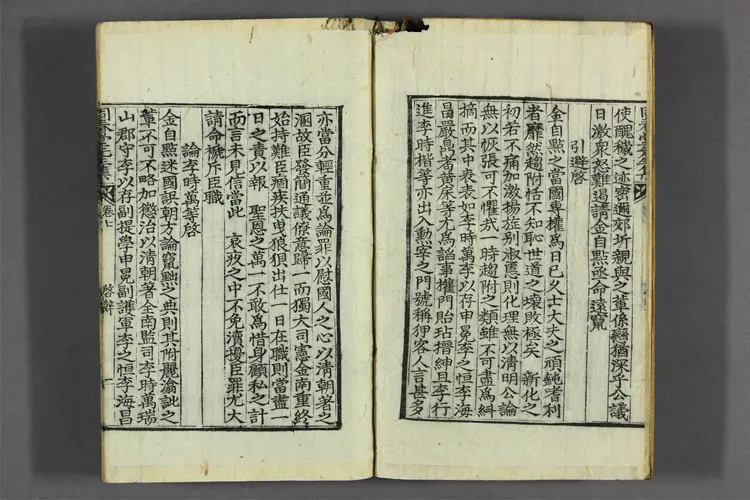 使醜穢之迹密邇郊圻親與之輩係戀猶深乎公議
日激衆怒難遏請金自點亟命遠竄
引避啓
金自點之當國專權爲日已久士大夫之頑鈍嗜利
者靡然趨附恬不知恥世道之壞敗極矣 新化之
初若不痛加激揚旌別淑慝則化理無以清明公論
無以恢張可不懼哉一時趨附之類雖不可盡爲糾
摘而其中表表如李時萬李以存申冕李之恒李海
昌嚴鼎耇黃等尤爲謟事權門貽玷搢紳且李行
進李時楷等亦出入勳宰之門號稱狎客人言甚多
亦當分輕重並爲論罪以慰國人之心以清朝著之
溷故臣發簡通議僚意歸一而獨大司憲金南重終
始持難臣痼疾扶曳狼狽出仕一日在職則當盡一
日之責以報 聖恩之萬一不敢爲惜身顧私之計
而言未見信當此 哀疚之中不免瀆擾臣罪尤大
請命褫斥臣職
論李時萬等啓
金自點迷國誤朝方論竄黜之典則其附麗淪訿之
輩不可不略加懲治以清朝著全南監司李時萬瑞
山郡守李以存副提學申冕副護軍李之恒李海昌
卷七 啓辭 一